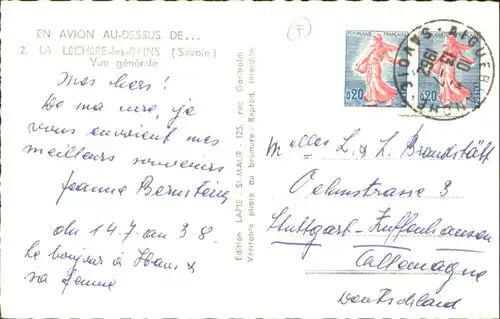 EN AVION AU-DESSUS DE...
2. LA LÉCHÈRE-les-BAINS (Savoie)
Vue générale
(F)
RÉPUBLIQUE FRANÇAISE
0,20
0,20
1962
vous envoient mes
meilleurs souvenirs
Jeanne
du 14.7. au 3 8.
Le bonjour à Hans &
sa femme
Edition LAPIE - St-MAUR - 125, rue Garibaldi
Véritable photo au bromure - Reprod. interdite.
Melles L. & L. Brandstätt
Oehmstrasse 3
Stuttgart-Zuffenhausen
Allemagne
Deutschland